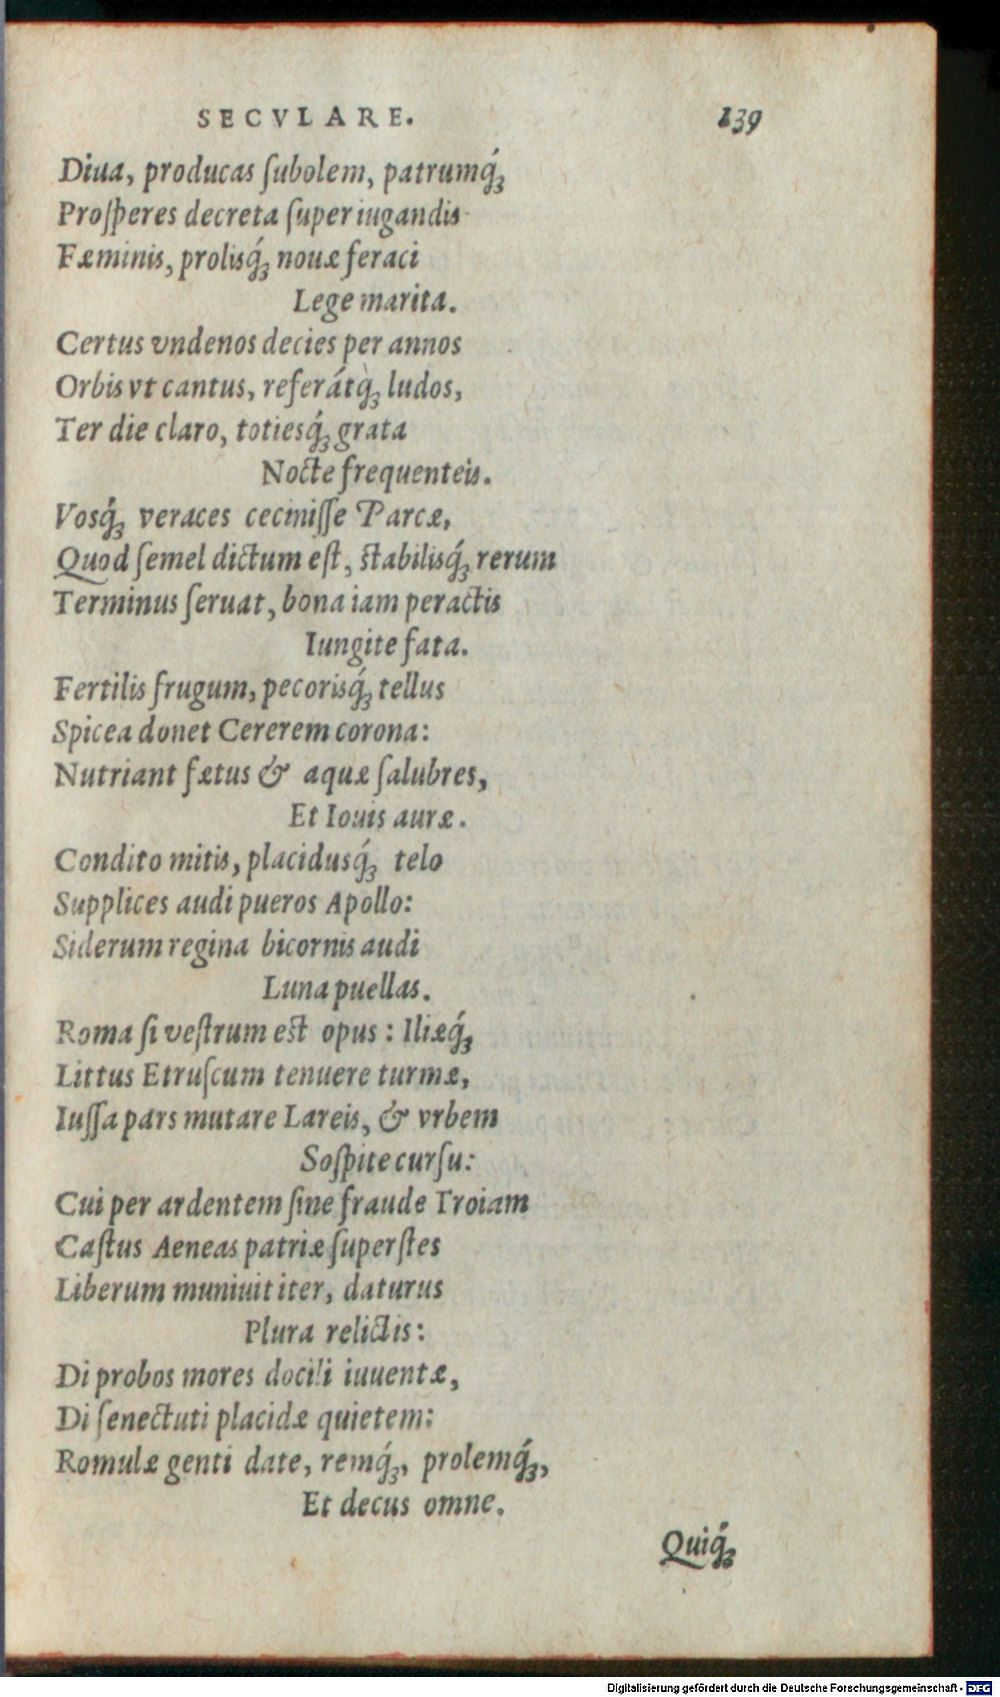 SECVLARE. 139
Diua, producas ſubolem, patrumq́ꝫ
Proſperes decreta ſuper iugandis
Fæminis, prolisq́ꝫ nouæ feraci
Lege marita.
Certus vndenos decies per annos
Orbis vt cantus, referátq̀ꝫ ludos,
Ter die claro, totiesq́ꝫ grata
Nocte frequenteis.
Vosq́ꝫ veraces ceciniſſe Parcæ,
Quod ſemel dictum eſt, ſtabilisq́ꝫ rerum
Terminus ſeruat, bona iam peractis
Iungite fata.
Fertilis frugum, pecorisq́ꝫ tellus
Spicea donet Cererem corona:
Nutriant fætus & aquæ ſalubres,
Et Iouis auræ.
Condito mitis, placidusq́ꝫ telo
Supplices audi pueros Apollo:
Siderum regina bicornis audi
Luna puellas.
Roma ſi veſtrum eſt opus: Iliæq́ꝫ
Littus Etruſcum tenuere turmæ,
Iuſſa pars mutare Lareis, & vrbem
Soſpite curſu:
Cui per ardentem ſine fraude Troiam
Caſtus Aeneas patriæ ſuperſtes
Liberum muniuit iter, daturus
Plura relictis:
Di probos mores docili iuuentæ,
Di ſenectuti placidæ quietem:
Romulæ genti date, remq́ꝫ, prolemq́ꝫ,
Et decus omne.
Quiq́ꝫ
Digitalisierung gefördert durch die Deutsche Forschungsgemeinschaft - DFG